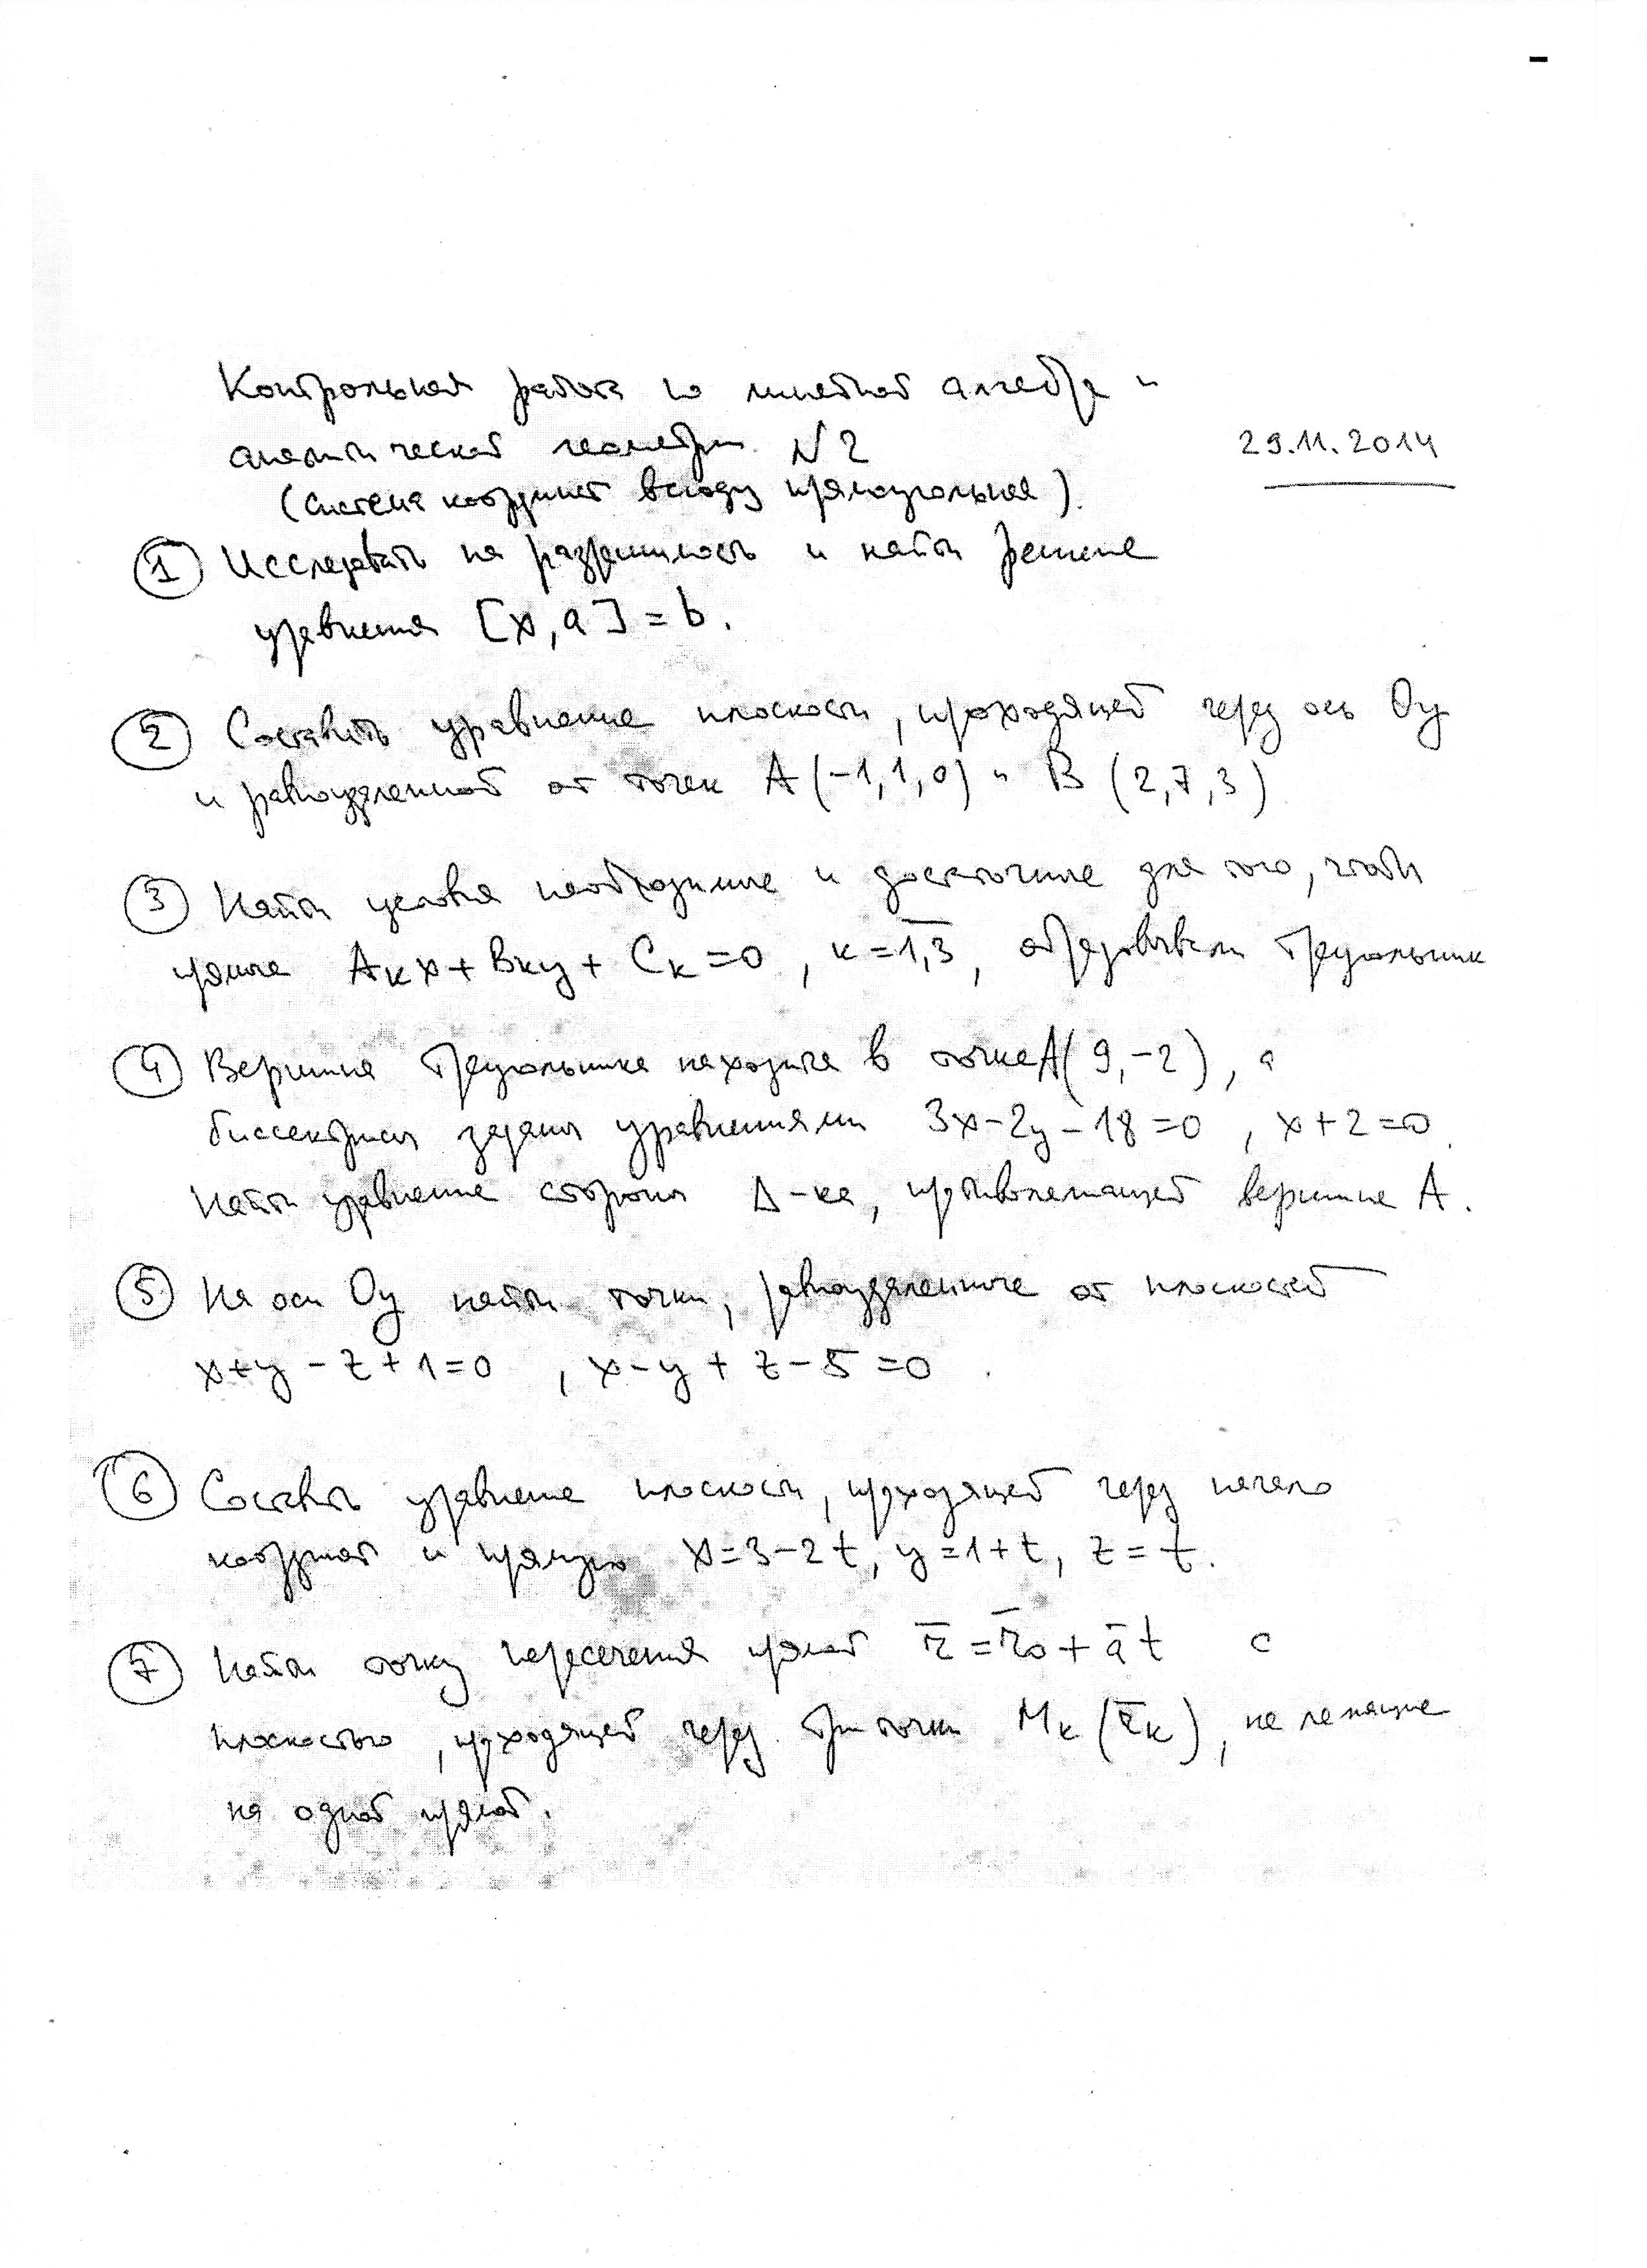 Контрольная работа по линейной алгебре и
аналитической геометрии N2
29.11.2014
(система координат всюду прямоугольная).
① Исследовать на разрешимость и найти решение
уравнения [x, a] = b.
② Составить уравнение плоскости, проходящей через ось Oy
и равноудаленной от точек A(-1,1,0) и B(2,7,3)
③ Найти условия необходимые и достаточные для того, чтобы
прямые Aкx + Bкy + Cк = 0, к = 1,3, образовывали треугольник
④ Вершина треугольника находится в точке A(9,-2), а
биссектрисы заданы уравнениями 3x-2y-18=0, x+2=0.
Найти уравнение стороны Δ-ка, противолежащей вершине A.
⑤ На оси Oy найти точки, равноудаленные от плоскостей
x+y-z+1=0, x-y+z-5=0.
⑥ Составить уравнение плоскости, проходящей через начало
координат и прямую x=3-2t, y=1+t, z=t.
⑦ Найти точку пересечения прямой r̄ = r̄₀ + āt с
плоскостью, проходящей через три точки Mк(r̄к), не лежащие
на одной прямой.